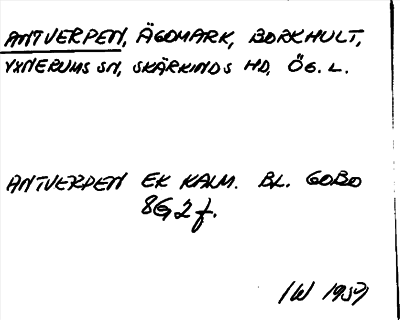 ANTVERPEN, ÄGOMARK, BORKHULT,
YXNERUMS SN, SKÄRKINDS HD, ÖG. L.
ANTVERPEN EK KALM. BL. GOBO
8G2f.
IW 1957